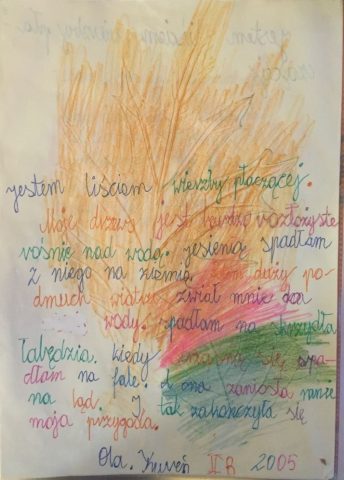 jestem liściem wierzby płaczącej.
Moje drzewo jest bardzo rozłożyste
rośnie nad wodą. jesienią spadłam
z niego na ziemię. duży po-
dmuch wiatru zwiał mnie do
wody. spadłam na skrzydła
łabędzia. kiedy się spa-
dłam na falę. A ona zaniosła mnie
na ląd. I tak zakończyła się
moja przygoda.
Ola. II B 2005